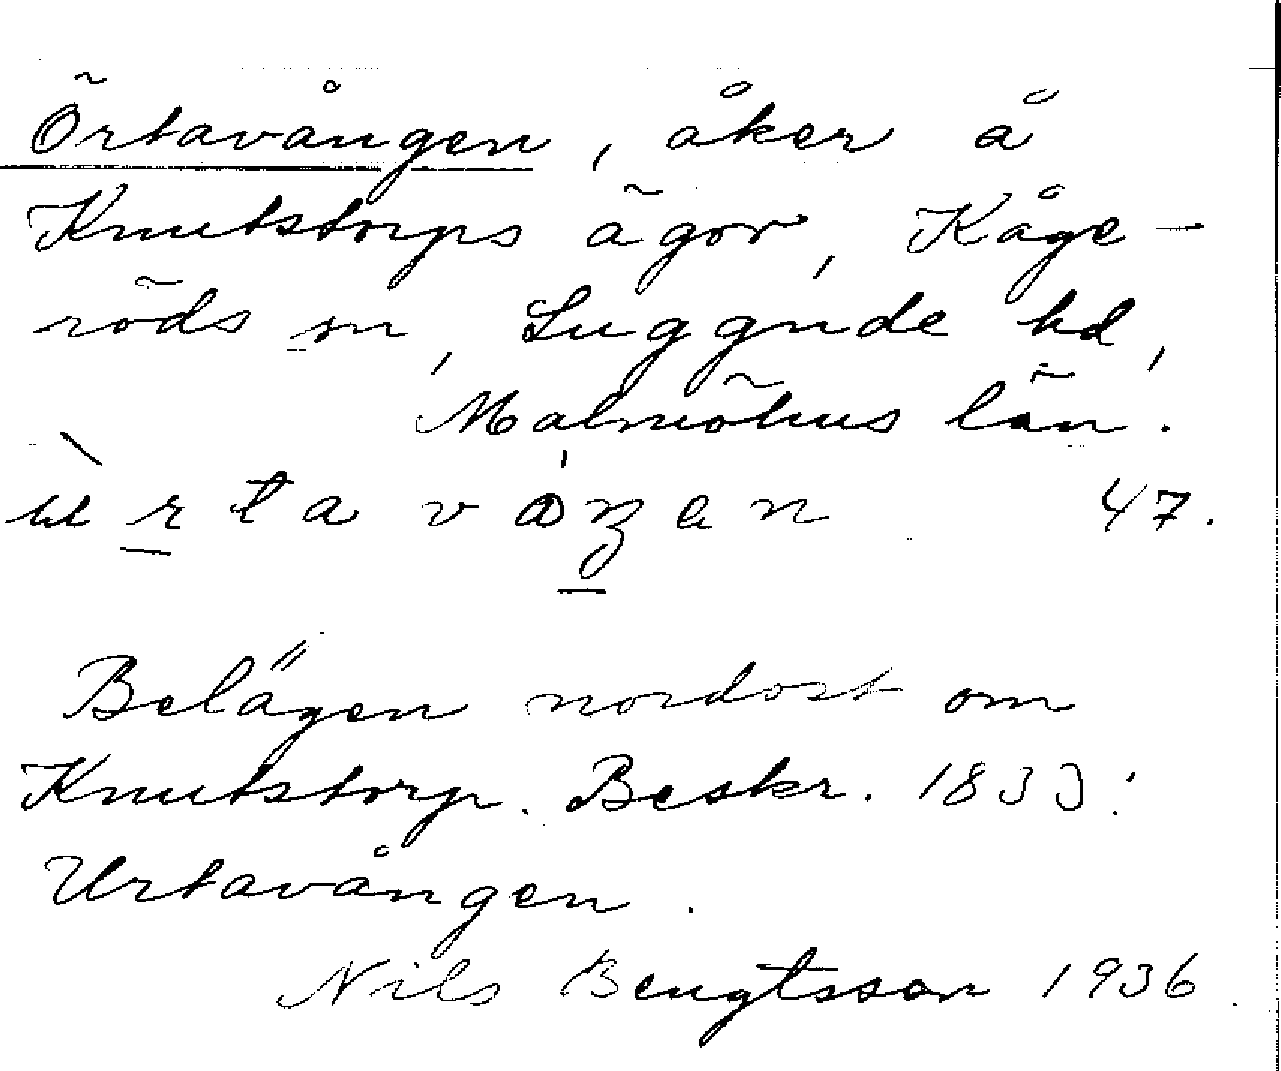 Örtavången, åker å
Knutstorps ägor, Kåge-
röds sn, Luggude hd,
Malmöhus län.
ùrtavåŋen 47.
Belägen nordost om
Knutstorp. Beskr. 1833:
Urtavången.
Nils Bengtsson 1936.